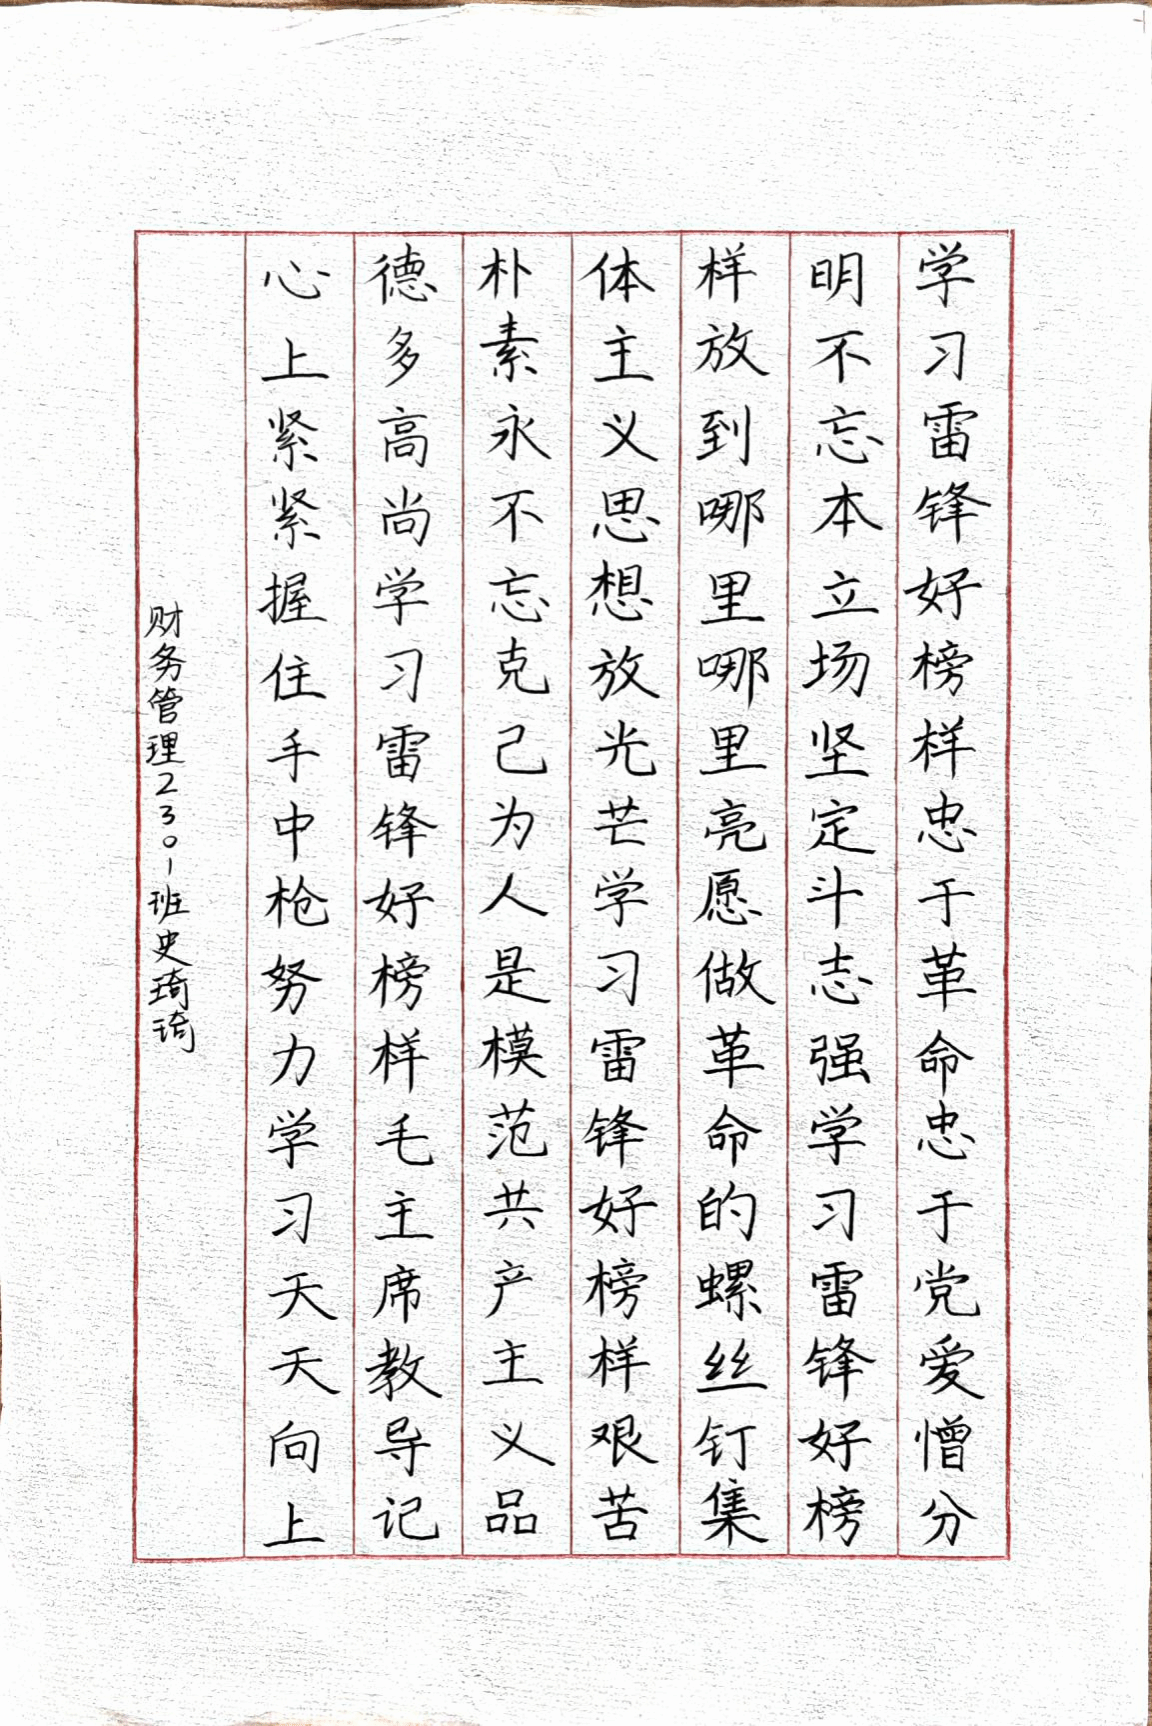 学习雷锋好榜样忠于革命忠于党爱憎分
明不忘本立场坚定斗志强学习雷锋好榜
样放到哪里哪里亮愿做革命的螺丝钉集
体主义思想放光芒学习雷锋好榜样艰苦
朴素永不忘克己为人是模范共产主义品
德多高尚学习雷锋好榜样毛主席教导记
心上紧紧握住手中枪努力学习天天向上
财务管理2301班史琦琦